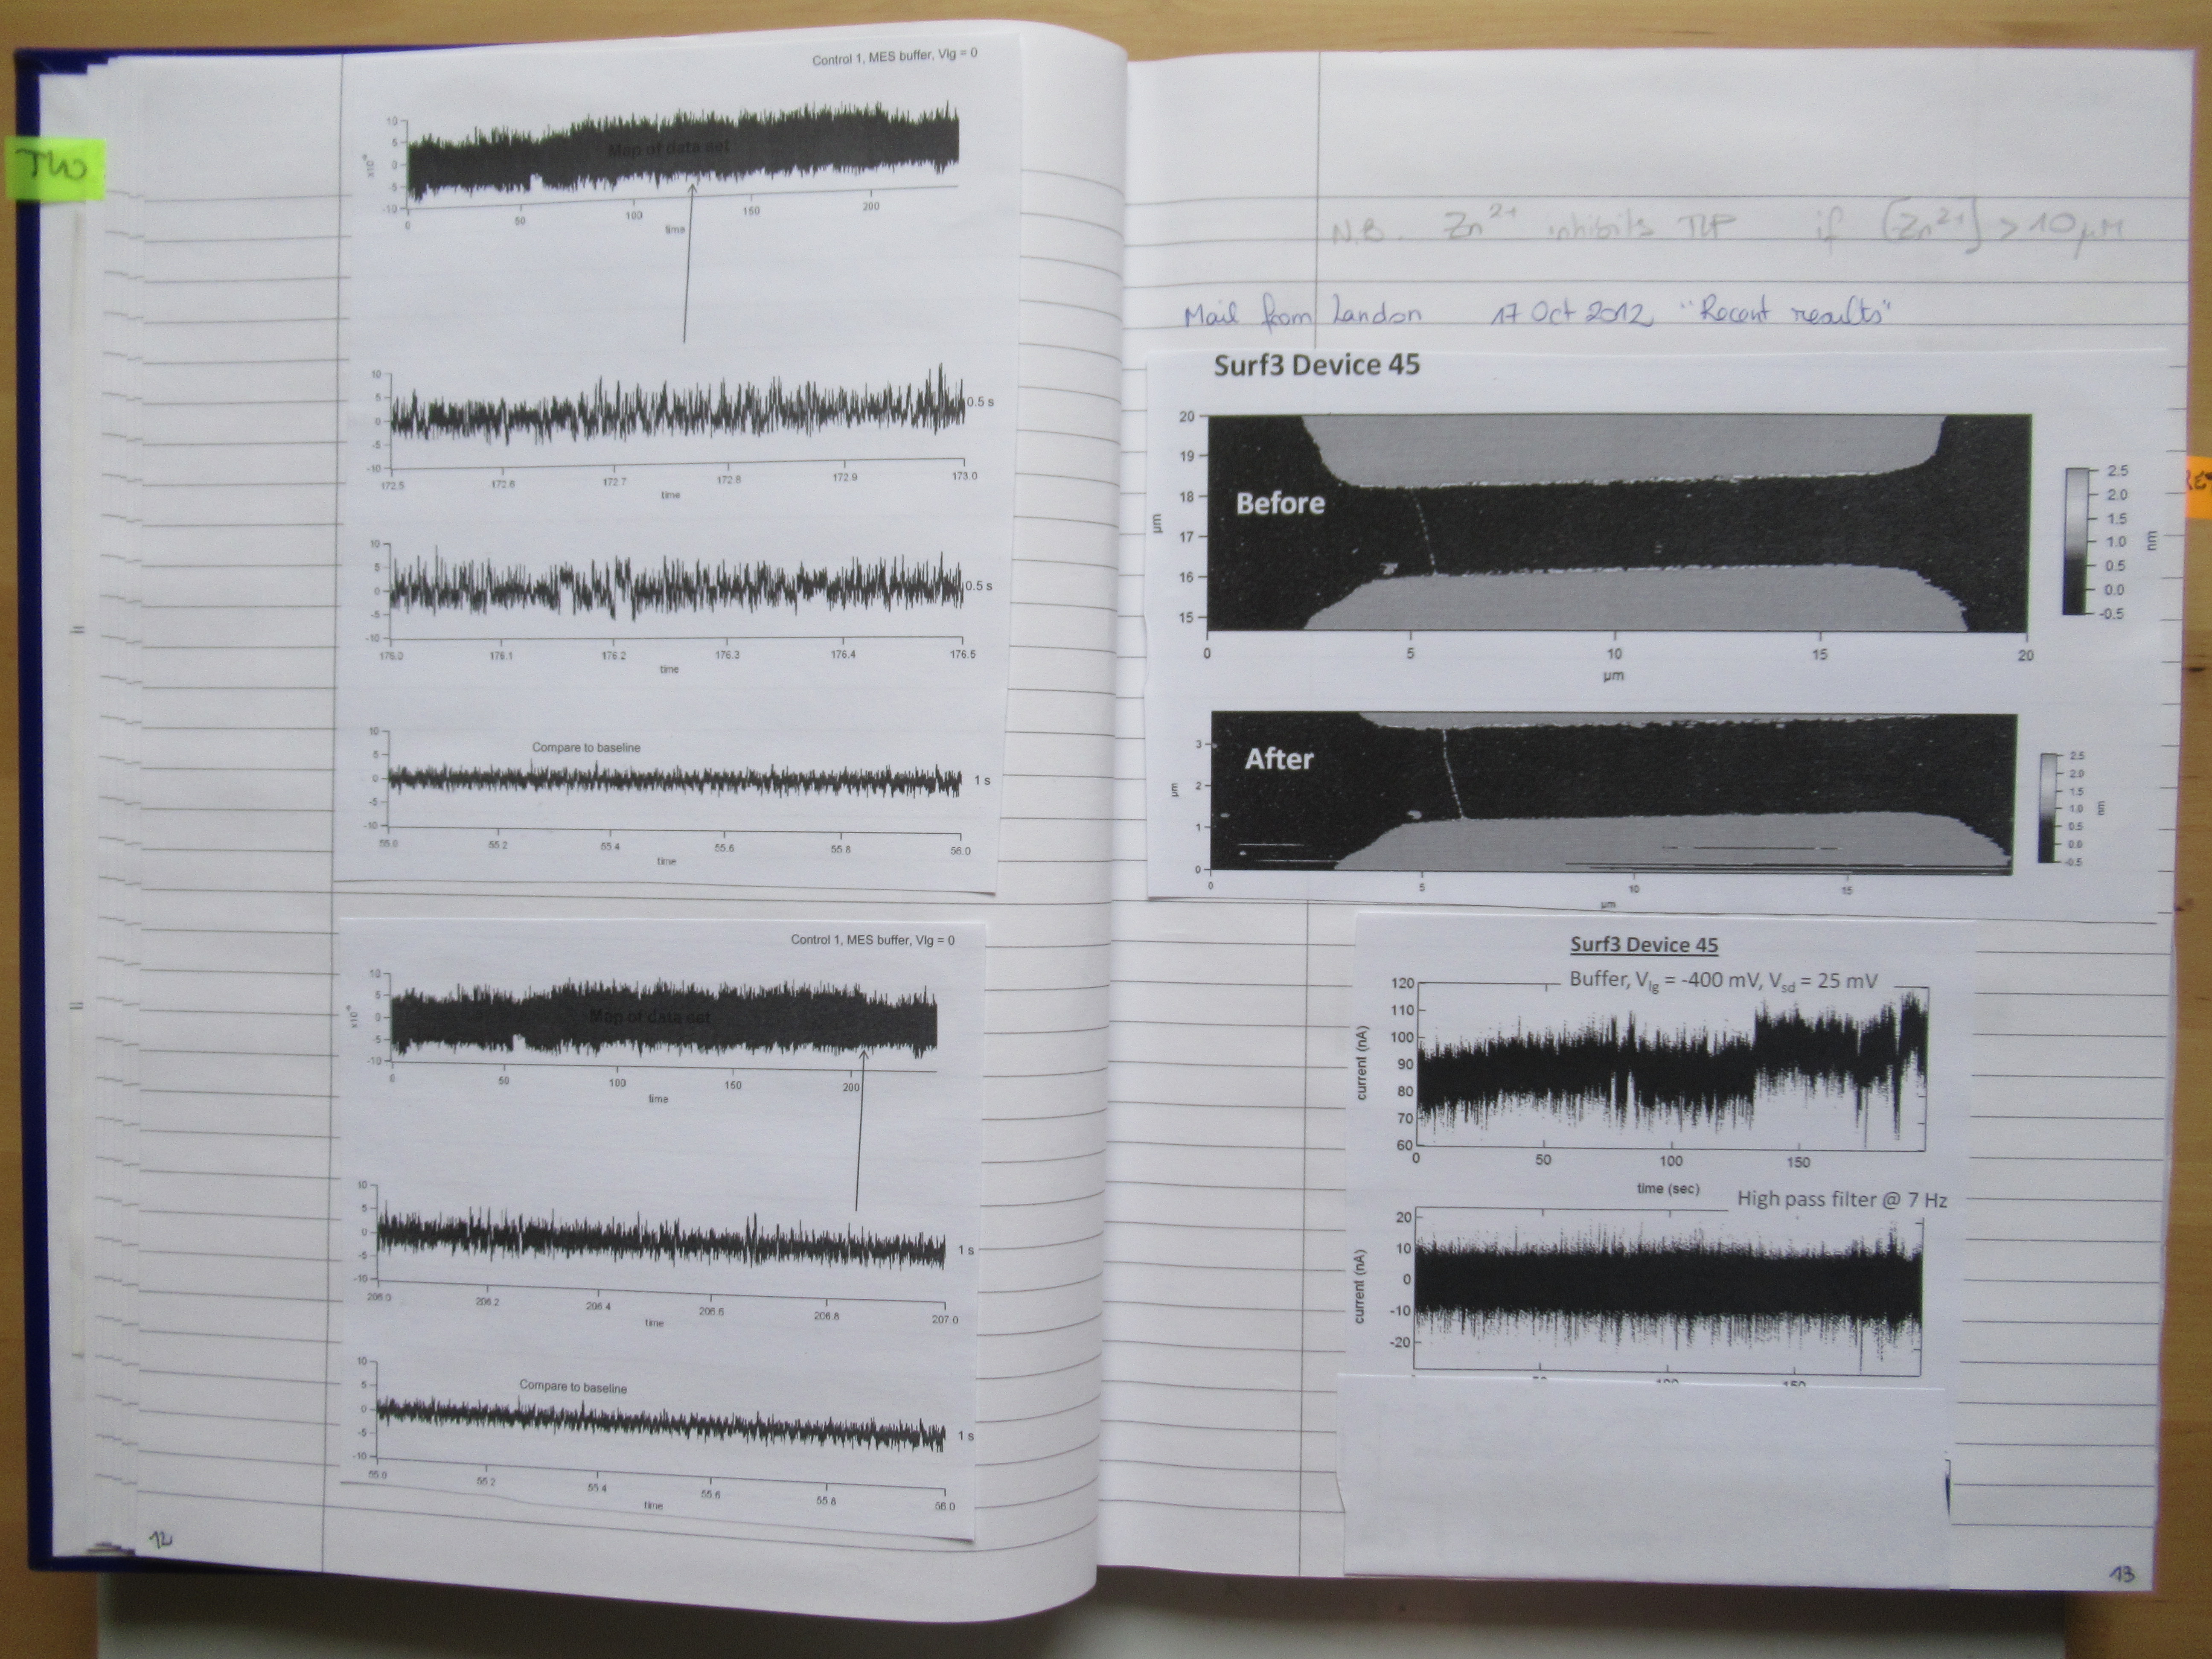 TW
Control 1, MES buffer, Vlg = 0
10
5
0
-5
-10
Map of data set
0 50 100 150 200
time
10
5
0
-5
-10
0.5 s
172.5 172.6 172.7 172.8 172.9 173.0
time
10
5
0
-5
-10
0.5 s
176.0 176.1 176.2 176.3 176.4 176.5
time
10
5
0
-5
-10
Compare to baseline
1 s
55.0 55.2 55.4 55.6 55.8 56.0
time
Control 1, MES buffer, Vlg = 0
10
5
0
-5
-10
Map of data set
0 50 100 150 200
time
10
5
0
-5
-10
1 s
206.0 206.2 206.4 206.6 206.8 207.0
time
10
5
0
-5
-10
Compare to baseline
1 s
55.0 55.2 55.4 55.6 55.8 56.0
time
12
N.B. Zn²⁺ inhibits TLP if [Zn²⁺] > 10 µM
Mail from Landon 17 Oct 2012 "Recent results"
Surf3 Device 45
20
19
18
17
16
15
µm
Before
0 5 10 15 20
µm
2.5
2.0
1.5
1.0
0.5
0.0
-0.5
nm
3
2
1
0
µm
After
0 5 10 15
µm
2.5
2.0
1.5
1.0
0.5
0.0
-0.5
nm
Surf3 Device 45
Buffer, Vlg = -400 mV, Vsd = 25 mV
120
110
100
90
80
70
60
current (nA)
0 50 100 150
time (sec)
High pass filter @ 7 Hz
20
10
0
-10
-20
current (nA)
13